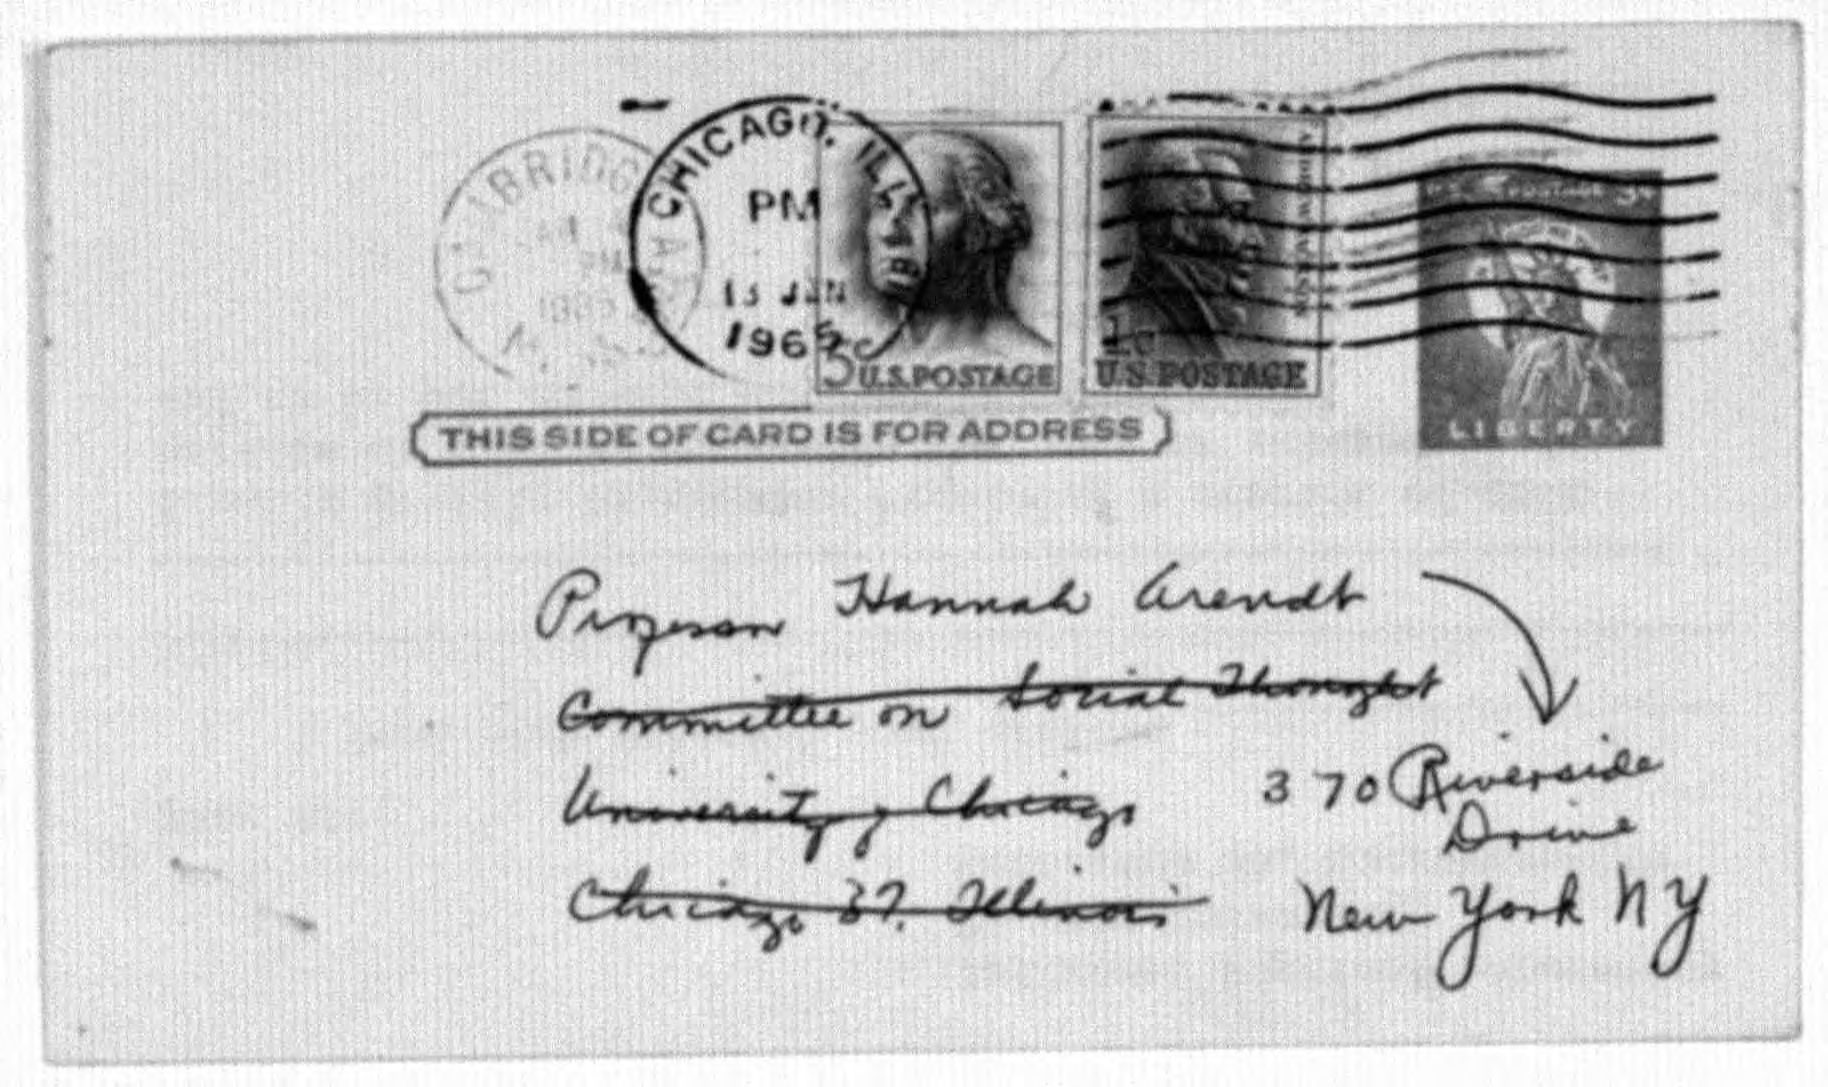 CAMBRIDGE
PM
1965
CHICAGO, ILL.
PM
13 JAN
1965
5c U.S. POSTAGE
1c
U.S. POSTAGE
U.S. POSTAGE 3¢
LIBERTY
THIS SIDE OF CARD IS FOR ADDRESS
Professor Hannah Arendt
Committee on Social Thought
University of Chicago
Chicago 37, Illinois
370 Riverside
Drive
New York NY